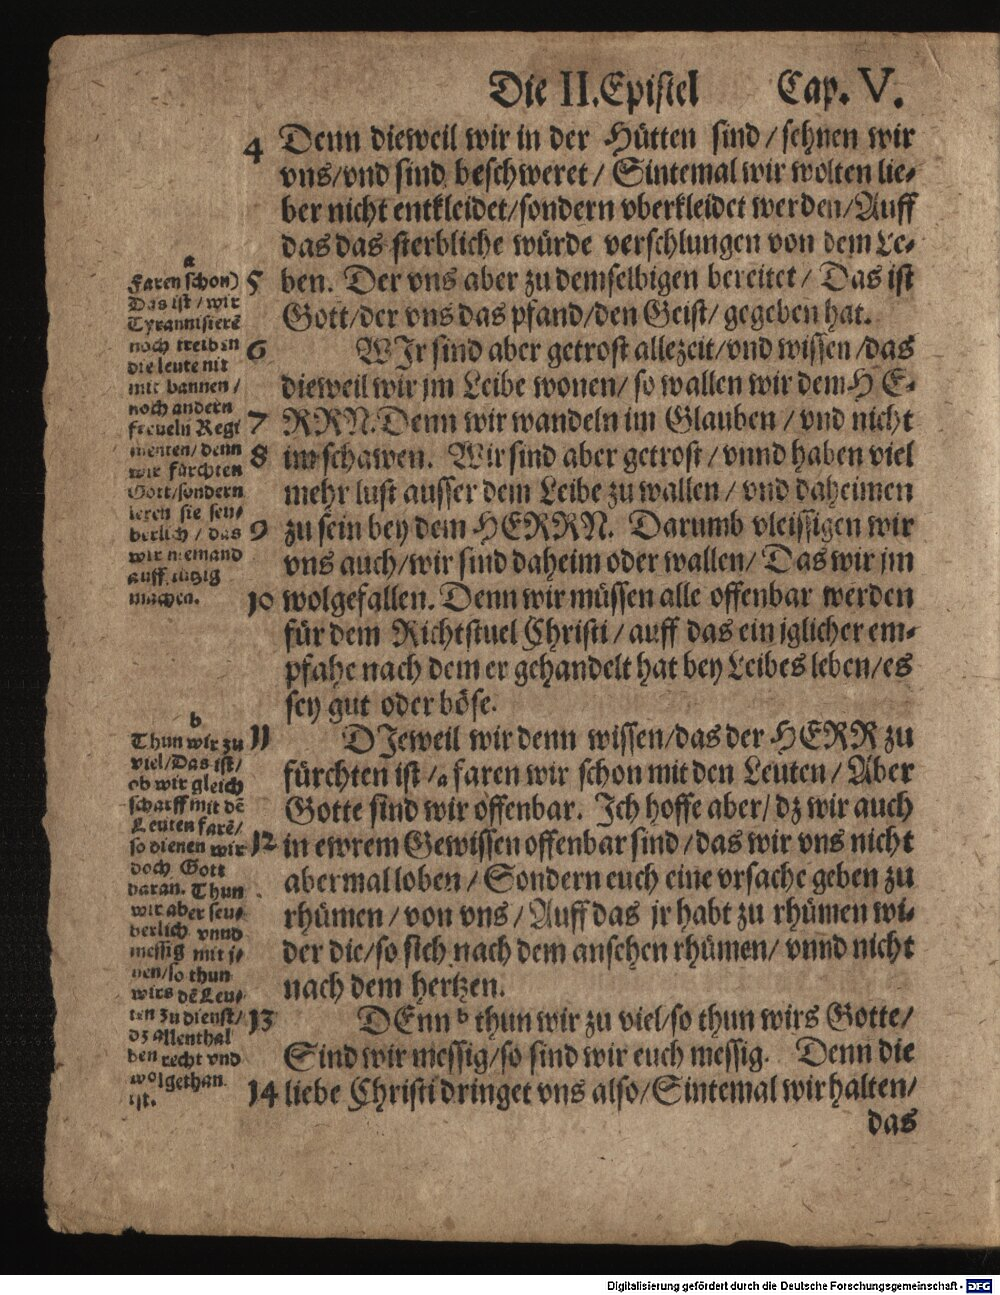 Die II. Epistel Cap. V.
4 Denn dieweil wir in der Hütten sind / sehnen wir
vns/vnd sind beschweret / Sintemal wir wolten lie-
ber nicht entkleidet/sondern vberkleidet werden/Auff
das das sterbliche würde verschlungen von dem Le-
5 ben. Der vns aber zu demselbigen bereitet / Das ist
Gott/der vns das pfand/den Geist/ gegeben hat.
6 WIr sind aber getrost allezeit/vnd wissen /das
dieweil wir jm Leibe wonen/ so wallen wir dem HE-
7 RRN. Denn wir wandeln im Glauben / vnd nicht
8 im schawen. Wir sind aber getrost / vnnd haben viel
mehr lust ausser dem Leibe zu wallen / vnd daheimen
9 zu sein bey dem HERRN. Darumb vleissigen wir
vns auch/wir sind daheim oder wallen/ Das wir jm
10 wolgefallen. Denn wir müssen alle offenbar werden
für dem Richtstuel Christi / auff das ein jglicher em-
pfahe nach dem er gehandelt hat bey Leibes leben/es
sey gut oder böse.
11 DJeweil wir denn wissen/das der HERR zu
fürchten ist /a faren wir schon mit den Leuten / Aber
Gotte sind wir offenbar. Ich hoffe aber/ dz wir auch
12 in ewrem Gewissen offenbar sind /das wir vns nicht
abermal loben / Sondern euch eine vrsache geben zu
rhümen /von vns / Auff das jr habt zu rhümen wi-
der die/so sich nach dem ansehen rhümen/ vnnd nicht
nach dem hertzen.
13 DEnn b thun wir zu viel/so thun wirs Gotte/
Sind wir messig/so sind wir euch messig. Denn die
14 liebe Christi dringet vns also/Sintemal wir halten/
das
a
Faren schon)
Das ist / wir
Tyrannisierē
noch treiben
die leute nit
mit bannen /
noch andern
freueln Regi
menten/ denn
wir fürchten
Gott/sondern
leren sie seu-
berlich / das
wir niemand
auff rügig
machen.
b
Thun wir zu
viel/Das ist/
ob wir gleich
scharff mit dē
Leuten farē/
so dienen wir
doch Gott
daran. Thun
wir aber seu-
berlich vnnd
messig mit j-
nen/so thun
wirs dē Leu-
ten zu dienst/
dz allenthal
ben recht vnd
wolgethan
ist.
Digitalisierung gefördert durch die Deutsche Forschungsgemeinschaft - DFG